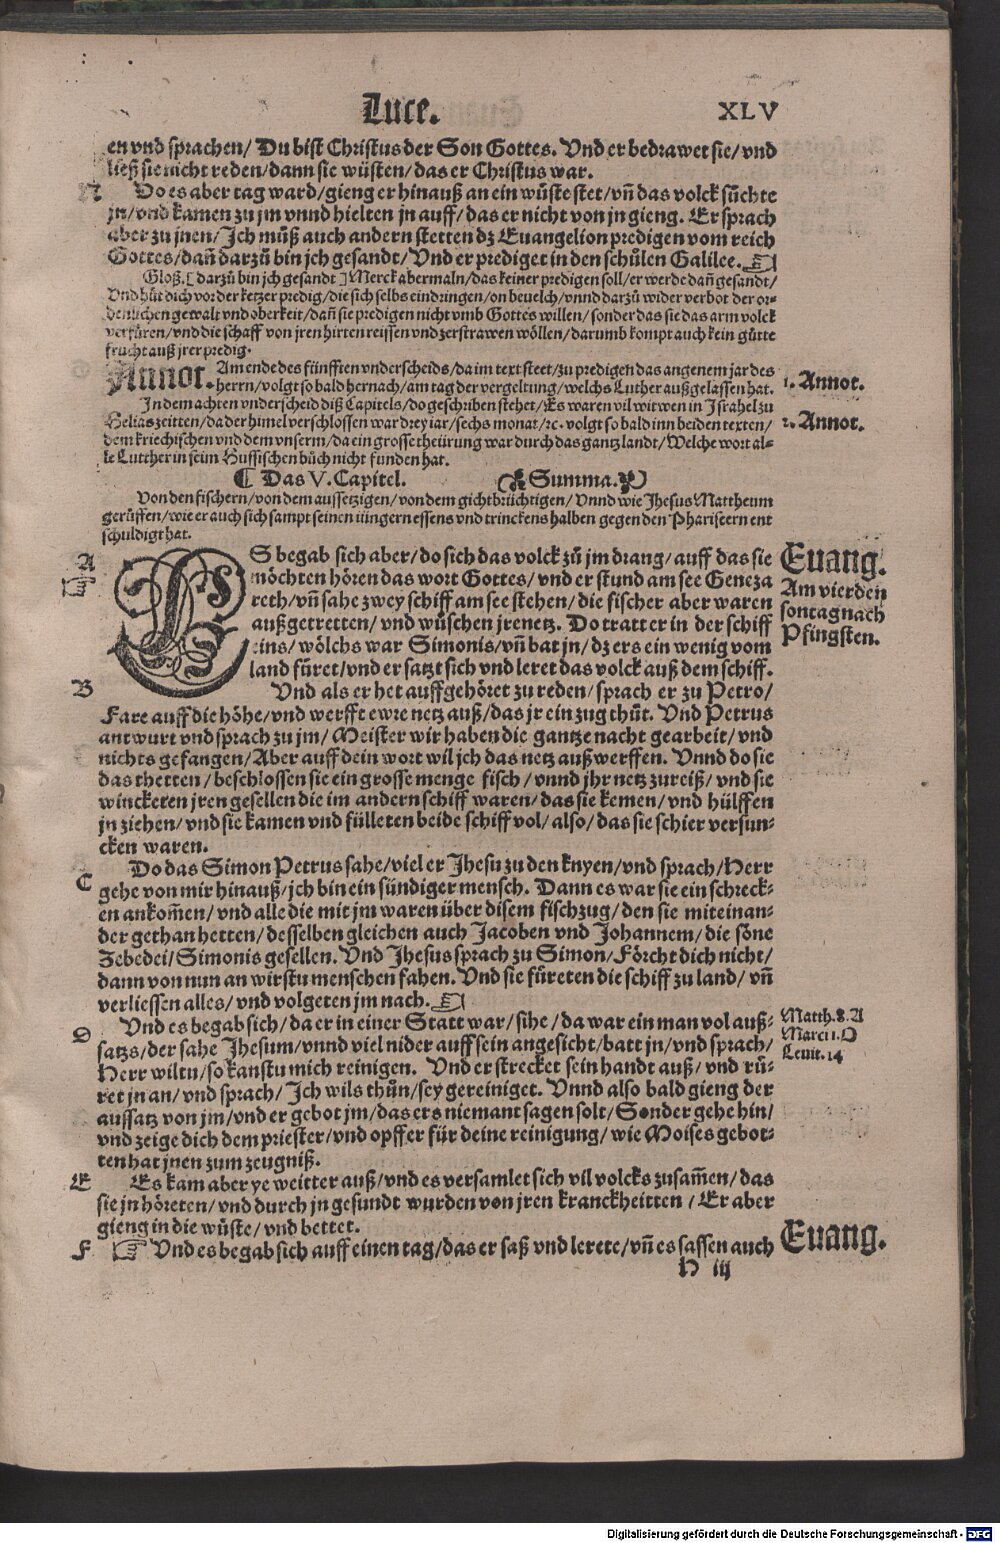 Luce. XLV
en vnd sprachen/ Du bist Christus der Son Gottes. Vnd er bedrawet sie/ vnd
ließ sie nicht reden/ dann sie wüsten/ das er Christus war.
N Do es aber tag ward/ gieng er hinauß an ein wůste stet/ vñ das volck sůchte
jn/ vnd kamen zu jm vnnd hielten jn auff/ das er nicht von jn gieng. Er sprach
aber zu jnen/ Ich můß auch andern stetten dz Euangelion predigen vom reich
Gottes/ dañ darzů bin jch gesandt/ Vnd er prediget in den schůlen Galilee.
Gloß. [darzů bin jch gesandt] Merck abermaln/ das keiner predigen soll/ er werde dañ gesandt/
Vnd hüt dich vor der ketzer predig/ die sich selbs eindringen/ on beuelch/ vnnd darzů wider verbot der or-
denlichen gewalt vnd oberkeit/ dañ sie predigen nicht vmb Gottes willen/ sonder das sie das arm volck
verfüren/ vnd die schaff von jren hirten reissen vnd zerstrawen wöllen/ darumb kompt auch kein gůtte
frucht auß jrer predig.
Annot. Am ende des fünfften vnderscheids/ da im text steet/ zu predigen das angenem jar des
herrn/ volgt so bald hernach/ am tag der vergeltung/ welchs Luther außgelassen hat.
1. Annot.
In dem achten vnderscheid diß Capitels/ do geschriben stehet/ Es waren vil witwen in Israhel zu
Helias zeitten/ da der himel verschlossen war drey iar/ sechs monat/ ꝛc. volgt so bald inn beiden texten/
2. Annot.
dem kriechischen vnd dem vnserm/ da ein grosse theürung war durch das gantz landt/ Welche wort al-
le Lutther in seim Hussischen bůch nicht funden hat.
¶ Das V. Capitel. Summa.
Von den fischern/ von dem aussetzigen/ von dem gichtbrüchtigen/ Vnnd wie Jhesus Mattheum
gerüffen/ wie er auch sich sampt seinen iüngern essens vnd trinckens halben gegen den Phariseern ent
schuldigt hat.
A ES begab sich aber/ do sich das volck zů jm drang/ auff das sie
möchten hören das wort Gottes/ vnd er stund am see Geneza
reth/ vñ sahe zwey schiff am see stehen/ die fischer aber waren
außgetretten/ vnd wüschen jre netz. Do tratt er in der schiff
eins/ wölchs war Simonis/ vñ bat jn/ dz ers ein wenig vom
land füret/ vnd er satzt sich vnd leret das volck auß dem schiff.
Euang.
Am vierden
sontag nach
Pfingsten.
B Vnd als er het auffgehöret zu reden/ sprach er zu Petro/
Fare auff die höhe/ vnd werfft ewre netz auß/ das jr ein zug thůt. Vnd Petrus
antwurt vnd sprach zu jm/ Meister wir haben die gantze nacht gearbeit/ vnd
nichts gefangen/ Aber auff dein wort wil jch das netz außwerffen. Vnnd do sie
das thetten/ beschlossen sie ein grosse menge fisch/ vnnd jhr netz zureiß/ vnd sie
winckeren jren gesellen die im andern schiff waren/ das sie kemen/ vnd hülffen
jn ziehen/ vnd sie kamen vnd fülleten beide schiff vol/ also/ das sie schier versun-
cken waren.
Do das Simon Petrus sahe/ viel er Jhesu zu den knyen/ vnd sprach/ Herr
C gehe von mir hinauß/ jch bin ein sündiger mensch. Dann es war sie ein schreck-
en ankom̃en/ vnd alle die mit jm waren über disem fischzug/ den sie miteinan-
der gethan hetten/ desselben gleichen auch Jacoben vnd Johannem/ die söne
Zebedei/ Simonis gesellen. Vnd Jhesus sprach zu Simon/ Förcht dich nicht/
dann von nun an wirstu menschen fahen. Vnd sie füreten die schiff zu land/ vñ
verliessen alles/ vnd volgeten jm nach.
D Vnd es begab sich/ da er in einer Statt war/ sihe/ da war ein man vol auß-
satzs/ der sahe Jhesum/ vnnd viel nider auff sein angesicht/ batt jn/ vnd sprach/
Herr wiltu/ so kanstu mich reinigen. Vnd er strecket sein handt auß/ vnd rü-
ret jn an/ vnd sprach/ Ich wils thůn/ sey gereiniget. Vnnd also bald gieng der
aussatz von jm/ vnd er gebot jm/ das ers niemant sagen solt/ Sonder gehe hin/
vnd zeige dich dem priester/ vnd opffer für deine reinigung/ wie Moises gebot-
ten hat jnen zum zeugniß.
Matth.8.A
Marci 1.D
Leuit.14
E Es kam aber ye weitter auß/ vnd es versamlet sich vil volcks zusam̃en/ das
sie jn höreten/ vnd durch jn gesundt wurden von jren kranckheitten/ Er aber
gieng in die wůste/ vnd bettet.
F Vnd es begab sich auff einen tag/ das er saß vnd lerete/ vñ es sassen auch
Euang.
H iij
Digitalisierung gefördert durch die Deutsche Forschungsgemeinschaft - DFG